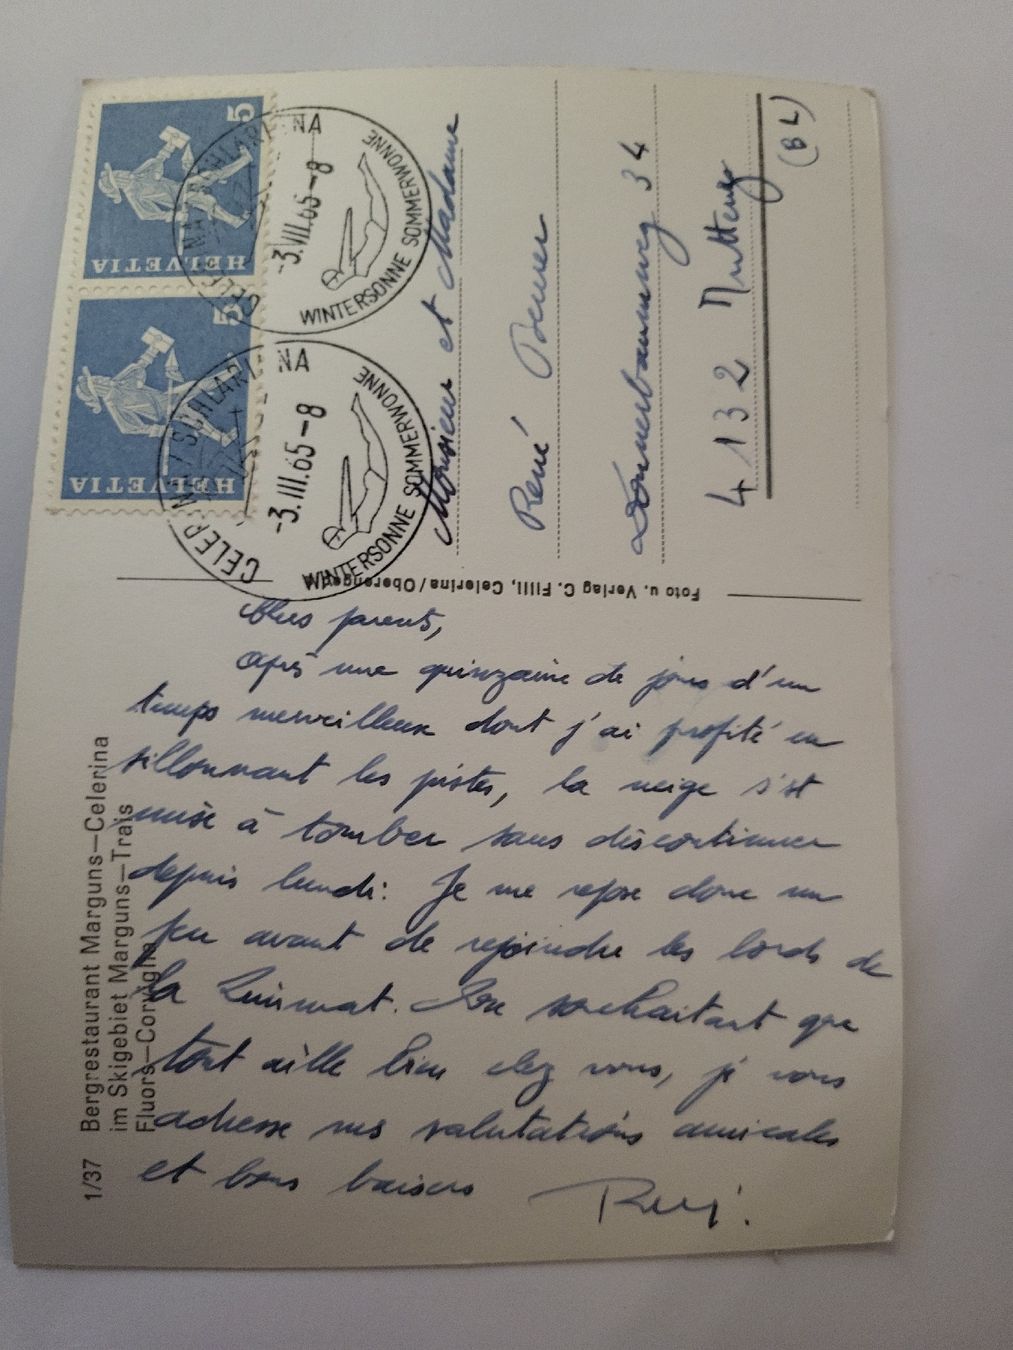 5
HELVETIA
5
HELVETIA
CELERINA/SCHLARIGNA
-3.III.65-8
WINTERSONNE SOMMERWONNE
CELERINA/SCHLARIGNA
-3.III.65-8
WINTERSONNE SOMMERWONNE
Monsieur et Madame
René
34
4132 Muttenz
(BL)
Foto u. Verlag C. Filli, Celerina/Oberengadin
parents,
après une quinzaine de jours d'un
temps merveilleux dont j'ai profité en
sillonnant les pistes, la neige s'est
mise à tomber sans discontinuer
depuis lundi: Je me repose donc un
peu avant de rejoindre les bords de
la Limmat. En souhaitant que
tout aille bien chez vous, je vous
adresse mes salutations amicales
et bons baisers
1/37 Bergrestaurant Marguns—Celerina
im Skigebiet Marguns—Trais
Fluors—Corviglia